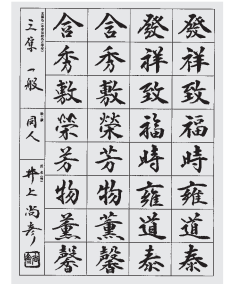 發祥致福時雍道泰
發祥致福時雍道泰
含秀敷榮芳物薰馨
含秀敷榮芳物薰馨
三集 一般
同人
井上尚彦